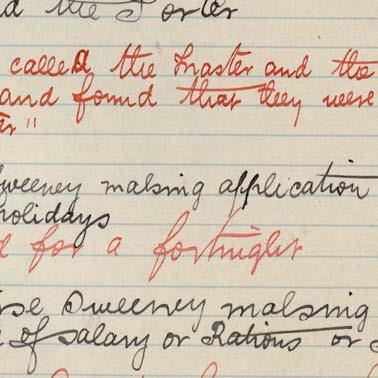 d the Porter
called the Master and the
and found that they were
er"
Sweeney making application
holidays
for a fortnight
rse Sweeney making
of salary or Rations or